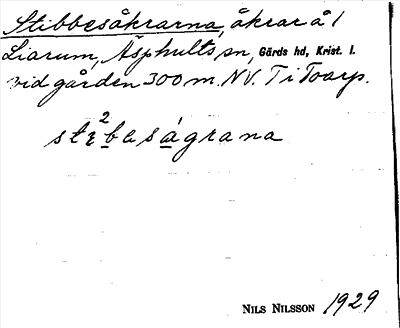 Stibbesåkrarna, åkrar å 1
Liarum, Äsphults sn, Gärds hd, Krist. l.
vid gården 300 m. NV. Ti Toarp.
NILS NILSSON 1929